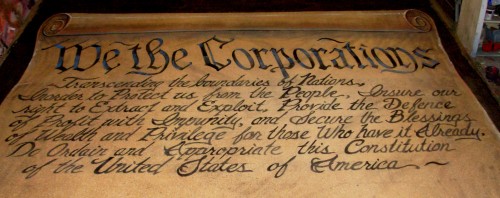 We the Corporations
Transcending the boundaries of Nations,
Inorder to Protect us from the People, Insure our
right to Extract and Exploit, Provide the Defence
of Profit with Impunity, and Secure the Blessings
of Wealth and Privilege for those Who have it Already.
Do Ordain and Appropriate this Constitution
of the United States of America